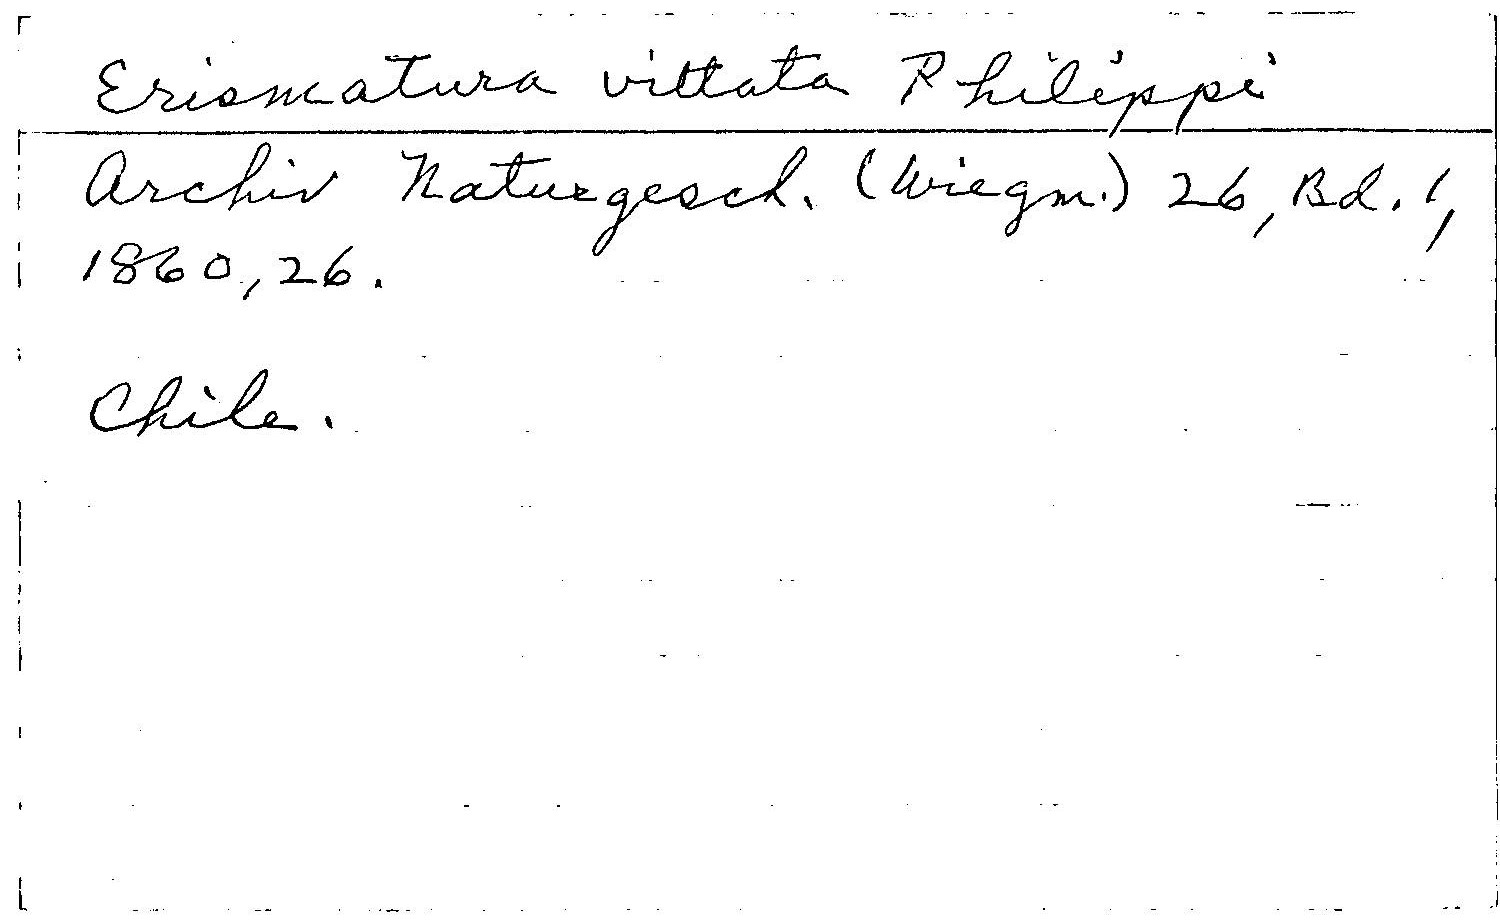 Erismatura vittata Philippi
Archiv Naturgesch. (Wiegm.) 26, Bd. 1,
1860, 26.
Chile.